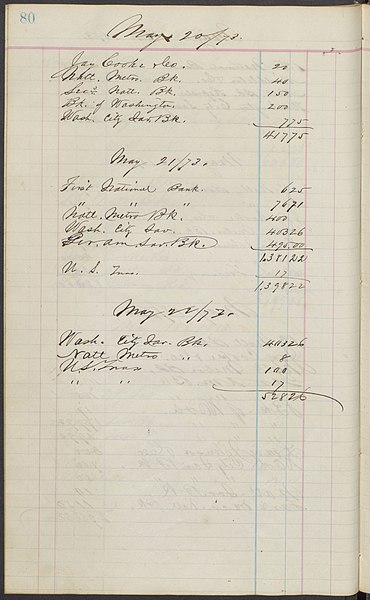 80
May 20/73.
Jay Cooke & Co. 20
Natl. Metro. Bk. 40
Sec. Natl. Bk. 150
Bk. of Washington. 200
Wash. City Sav. Bk. 775
41775
May 21/73.
First National Bank. 625
" " " 7671
Natl. Metro Bk. 400
Wash. City Sav. 40326
Ger. Am Sav. Bk. 495.00
138122
U. S. Treas. 17
139822
May 22/73.
Wash. City Sav. Bk. 40326
Natl Metro " 8
U.S. Treas 100
" " 17
52826